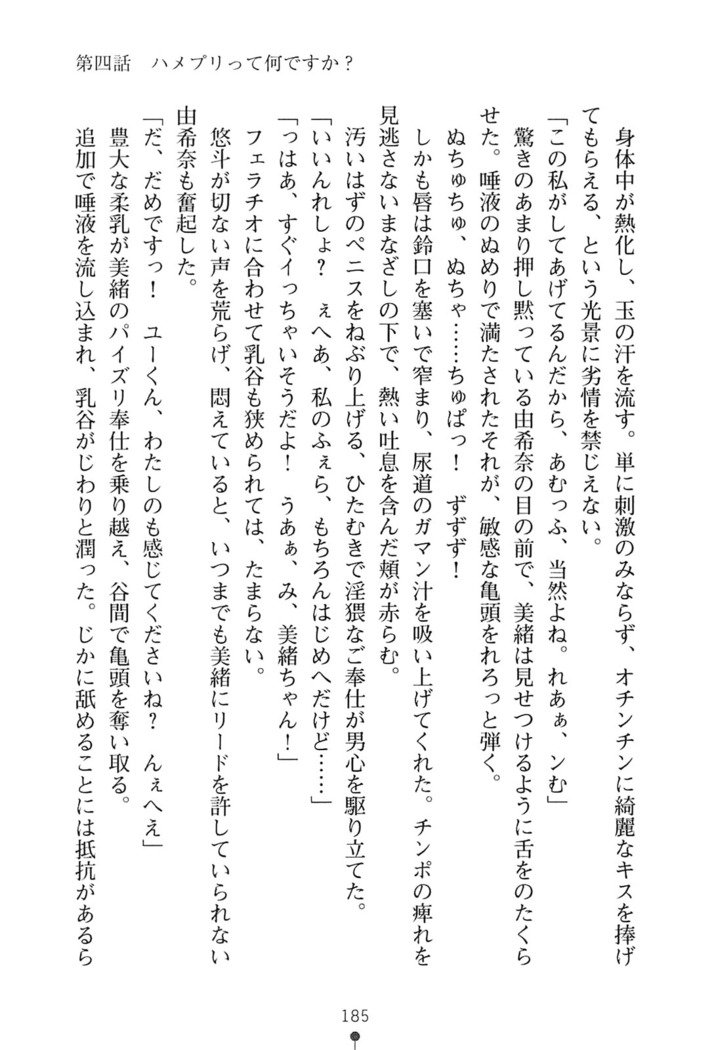 第四話　ハメプリって何ですか？
　身体中が熱化し、玉の汗を流す。単に刺激のみならず、オチンチンに綺麗なキスを捧げ
てもらえる、という光景に劣情を禁じえない。
「この私がしてあげてるんだから、あむっふ、当然よね。れあぁ、ンむ」
　驚きのあまり押し黙っている由希奈の目の前で、美緒は見せつけるように舌をのたくら
せた。唾液のぬめりで満たされたそれが、敏感な亀頭をれろっと弾く。
　ぬちゅちゅ、ぬちゃ……ちゅぱっ！　ずずず！
　しかも唇は鈴口を塞いで窄まり、尿道のガマン汁を吸い上げてくれた。チンポの痺れを
見逃さないまなざしの下で、熱い吐息を含んだ頬が赤らむ。
　汚いはずのペニスをねぶり上げる、ひたむきで淫猥なご奉仕が男心を駆り立てた。
「いいんれしょ？　ぇへあ、私のふぇら、もちろんはじめへだけど……」
「っはあ、すぐイっちゃいそうだよ！　うあぁ、み、美緒ちゃん！」
　フェラチオに合わせて乳谷も狭められては、たまらない。
　悠斗が切ない声を荒らげ、悶えていると、いつまでも美緒にリードを許していられない
由希奈も奮起した。
「だ、だめですっ！　ユーくん、わたしのも感じてくださいね？　んぇへえ」
　豊大な柔乳が美緒のパイズリ奉仕を乗り越え、谷間で亀頭を奪い取る。
　追加で唾液を流し込まれ、乳谷がじわりと潤った。じかに舐めることには抵抗があるら
185